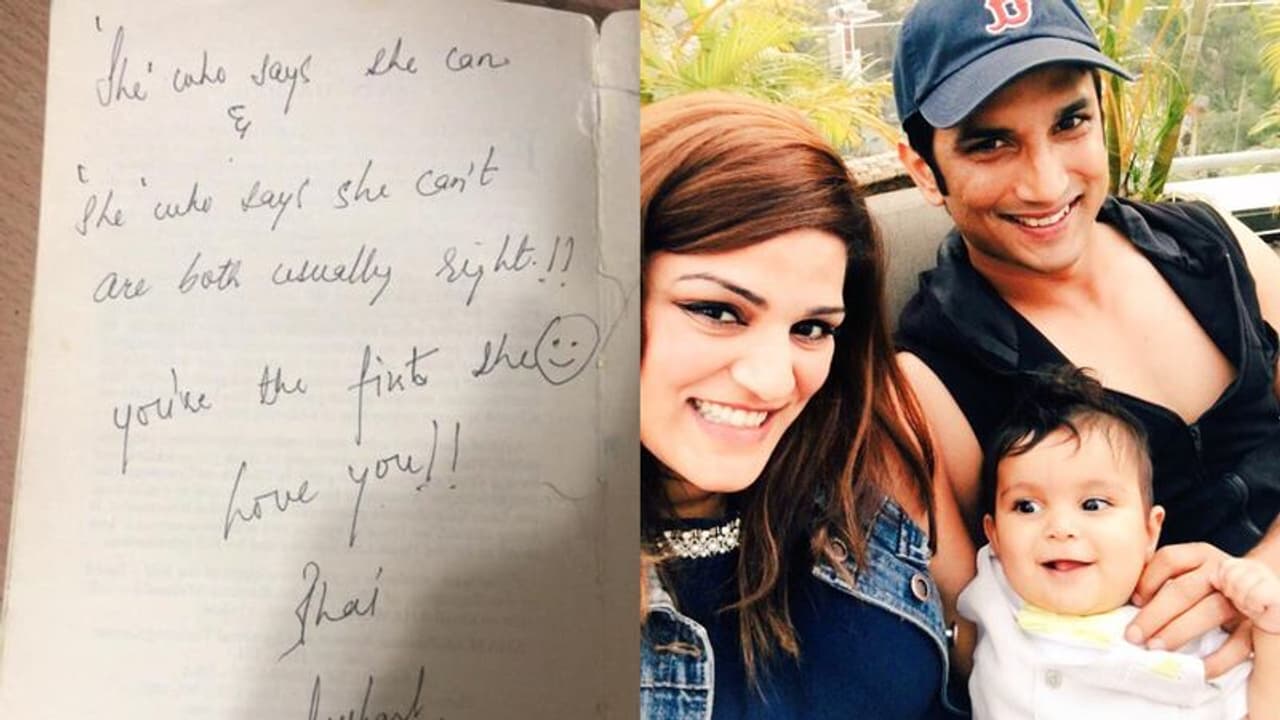 'She' who says she can
&
'She' who says she can't
are both usually right.!!
you're the first she
Love you!!
Bhai
B